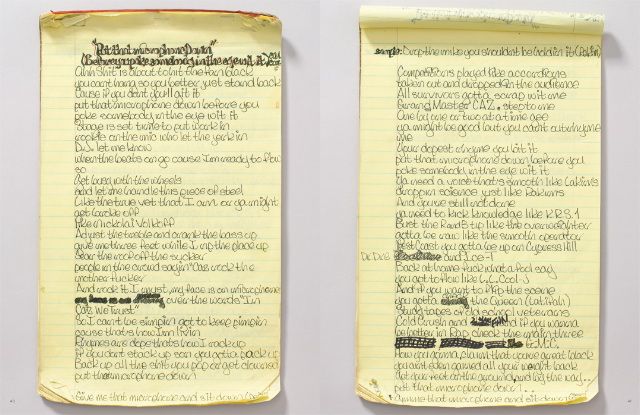 "Put that microphone Down"
(Before you poke somebody in the eye wit it)
Ahh Shit is about to hit the fan black
you cant hang so you better just stand back
Cause if you dont you'll aft it
put that microphone down before you
poke somebody in the eye wit it
Stage is set time to put work in
rookie on the mic who let the jerk in
D.J. let me know
when the beats on go cause Im ready to flow
so
Get busy with the wheels
and let me handle this piece of steel
Like the true vet that I am or ya might
get broke off
like nickolai Volkoff
Adjust the treble and crank the bass up
give me three feet while I rip the place up
Tear the roof off the sucker
people in the crowd sayin "Caz rock the
mother fucker
And rock it I must, my face is on microphone
over the words "In
Caz We Trust"
So I can't be simpin got to keep pimpin
cause that's how Im livin
Rhymes are dope that's how I rack up
if you dont stack up son you gotta back up
Back up all the shit you pop or get clowned
put that microphone down
Give me that microphone and sit down
sample: Drop the mike you shouldn't be holdin it (Rakim)
Competitions played like accordions
taken out and dropped in the audience
All survivors gotta, scrap wit me
Grand Master CAZ. step to me
One by one or two at a time gee
ya might be good but you can't out rhyme
me
Your dopest rhyme you bit it
put that microphone down before you
poke somebody in the eye wit it
Ya need a voice that's smooth like Calvins
droppin science just like Rakims
And youre still not done
ya need to kick knowledge like KRS.1
Bust the R and B tip like the overweighter
gotta be raw like the smooth operator
West Coast you gotta be up on Cypress Hill
Dr. Dre and Ice-T
Back at home fuck what a fool say
you got to flow like L.L. Cool-J
And if you want to rap the scene
you gotta the Queen (Latifah)
Study tapes of old school veterans
Cold Crush and and if you wanna
be better in Rap check the main three
G.M.C.
How you gonna claim that you're great black
you aint even gained all your weight back
get your feet on the ground and by the way..
put that microphone down..
Gimme that microphone and sit down